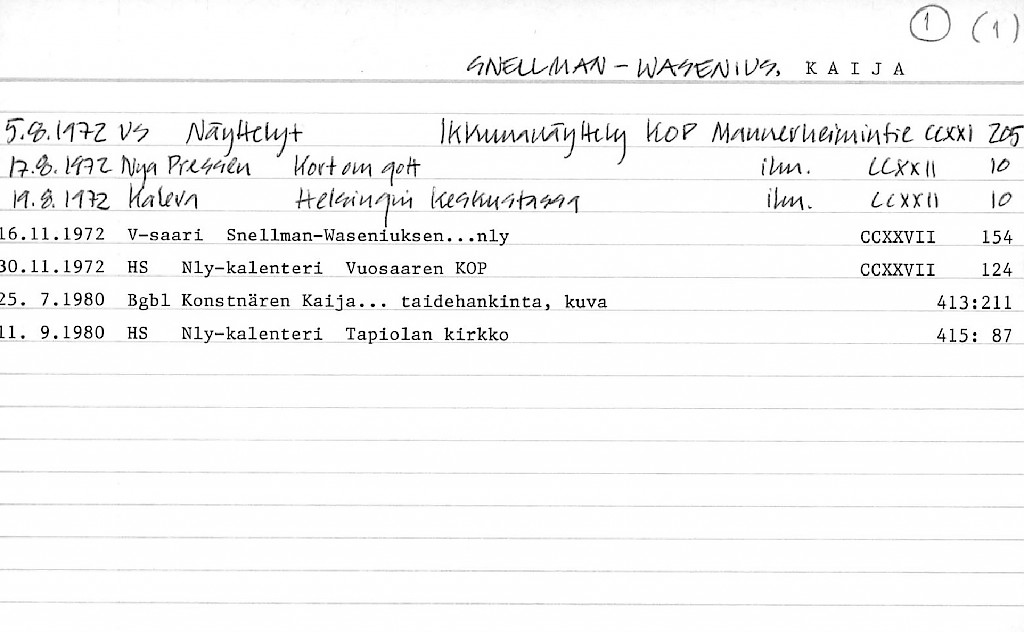 1 (1)
SNELLMAN-WASENIUS, KAIJA
5.8.1972 VS Näyttelyt Ikkunanäyttely KOP Mannerheimintie CCXXI 205
17.8.1972 Nya Pressen Kort om gott ilm. CCXXII 10
19.8.1972 Kaleva Helsingin keskustassa ilm. CCXXII 10
16.11.1972 V-saari Snellman-Waseniuksen...nly CCXXVII 154
30.11.1972 HS Nly-kalenteri Vuosaaren KOP CCXXVII 124
25. 7.1980 Bgbl Konstnären Kaija... taidehankinta, kuva 413:211
11. 9.1980 HS Nly-kalenteri Tapiolan kirkko 415: 87